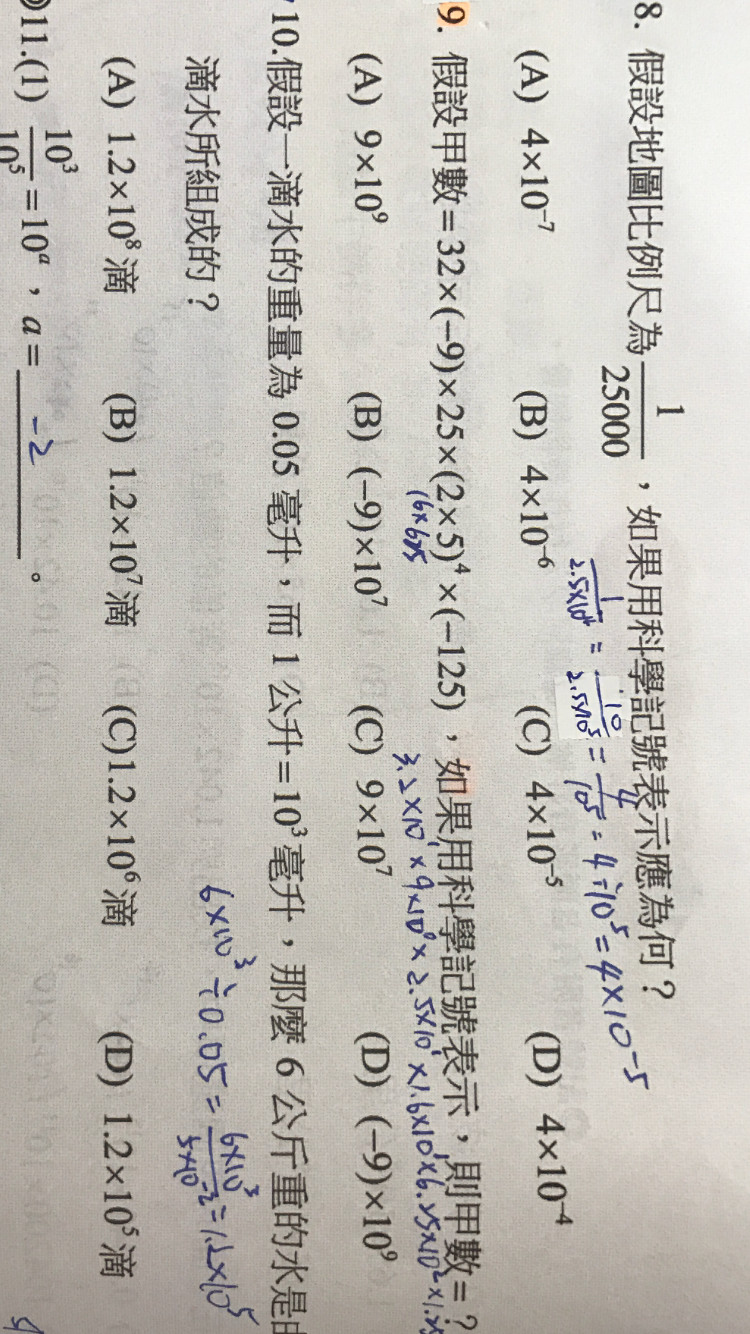 8. 假設地圖比例尺為 1/25000,如果用科學記號表示應為何?
1/2.5×10⁴ = 10/2.5×10⁵ = 4/10⁵ = 4÷10⁵ = 4×10⁻⁵
(A) 4×10⁻⁷ (B) 4×10⁻⁶ (C) 4×10⁻⁵ (D) 4×10⁻⁴
9. 假設甲數=32×(−9)×25×(2×5)⁴×(−125),如果用科學記號表示,則甲數=?
16×625 3.2×10¹×9×10⁰×2.5×10¹×1.6×10¹×6.25×10²×1.25
(A) 9×10⁹ (B) (−9)×10⁷ (C) 9×10⁷ (D) (−9)×10⁹
10.假設一滴水的重量為 0.05 毫升,而 1 公升=10³毫升,那麼 6 公斤重的水是
滴水所組成的?
6×10³÷0.05 = 6×10³/5×10⁻² = 1.2×10⁵
(A) 1.2×10⁸滴 (B) 1.2×10⁷滴 (C)1.2×10⁶滴 (D) 1.2×10⁵滴
11.(1) 10³/10⁵=10ᵃ,a= -2 。